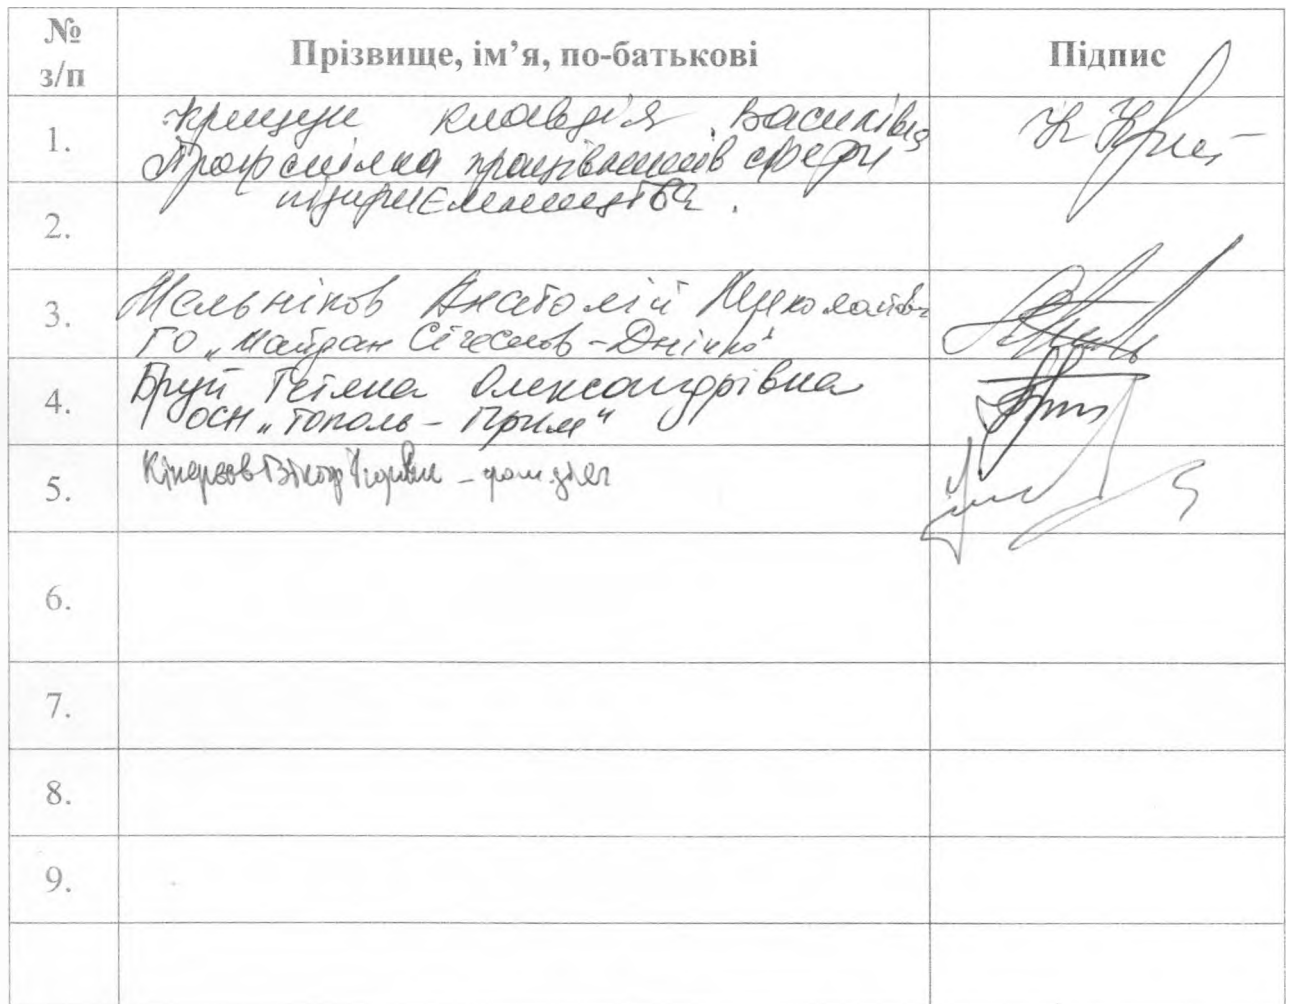 № з/п Прізвище, ім’я, по-батькові Підпис
1. Крищун Клавдія Василівна
Профспілка працівників сфери
2. підприємництва.
3. Мельніков Анатолій Миколайович
ГО „Майдан Січеслав-Дніпро"
4. Бруй Тетяна Олександрівна
ОСН „Тополь-Прим"
5. Віктор
6.
7.
8.
9.